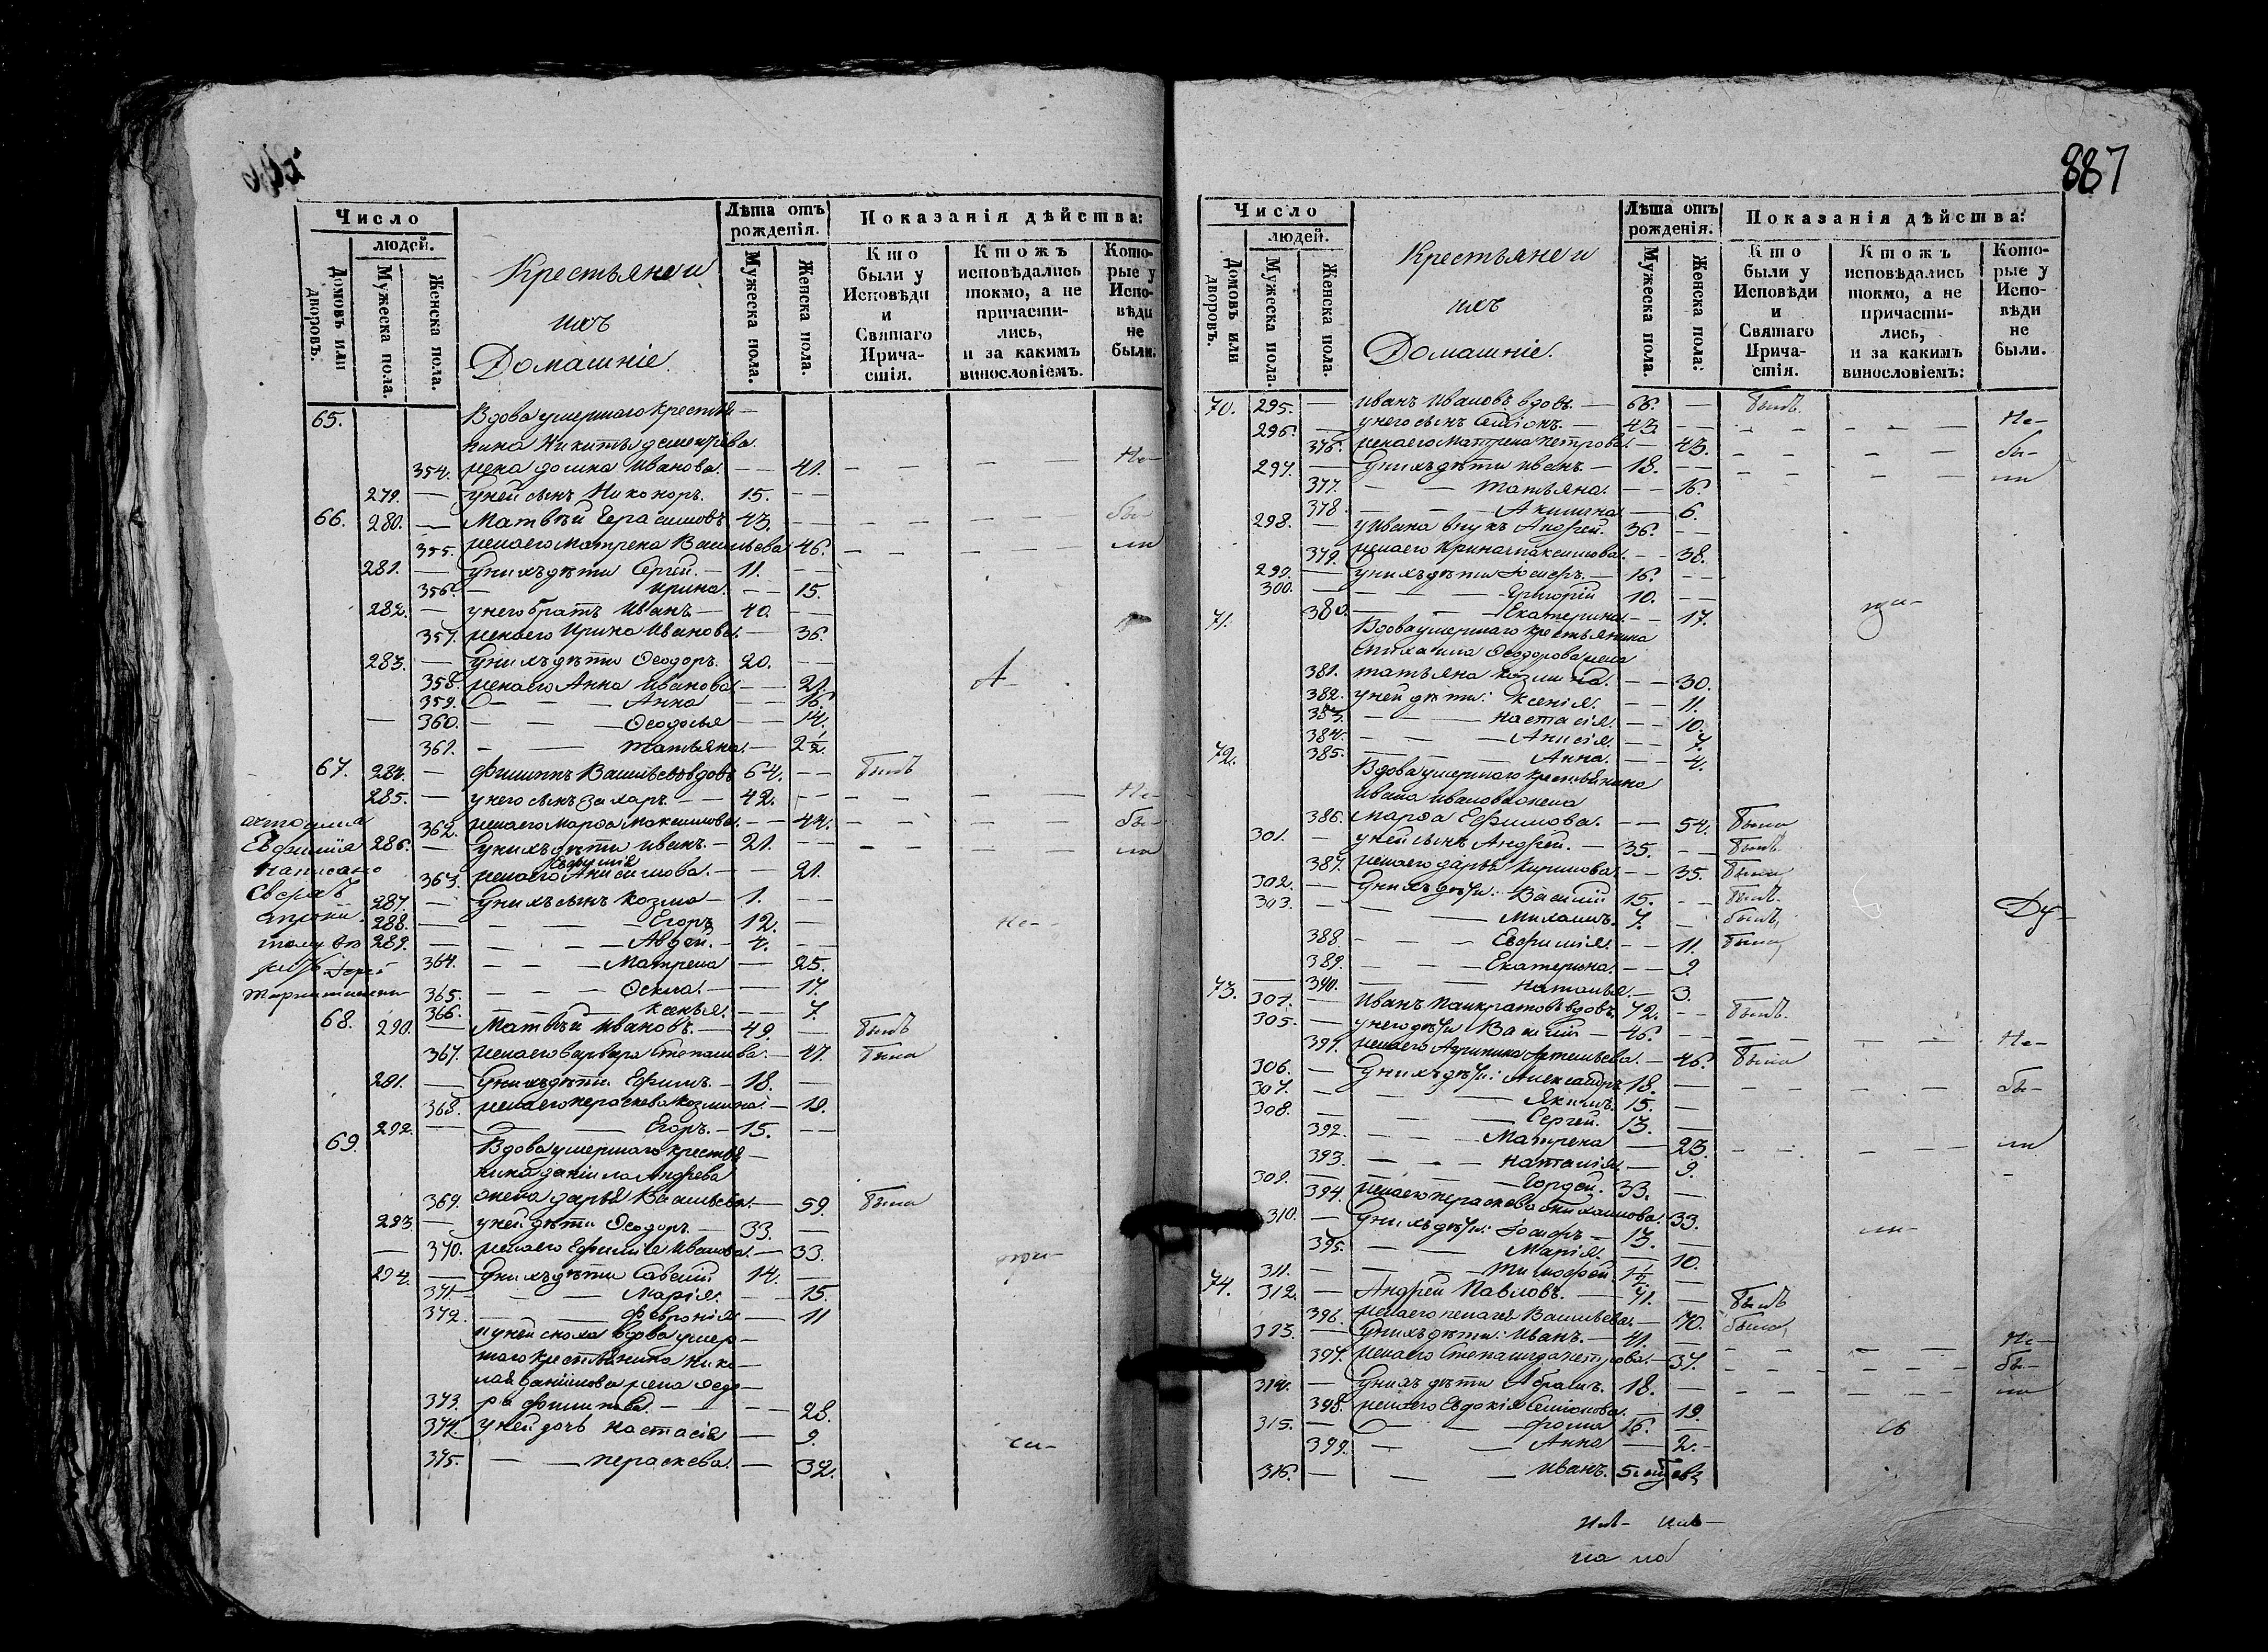 887
Число
людей.
Домовъ или дворовъ.
Мужеска пола.
Женска пола.
Крестьяне и
ихъ
Домашніе.
Лѣта отъ рожденія.
Мужеска пола.
Женска пола.
Показанія дѣйства:
Кто были у Исповѣди и Святаго Причастія.
Ктожъ исповѣдались токмо, а не причастились, и за какимъ винословіемъ.
Которые у Исповѣди не были.
65. Вдова умершаго крестья-
нина Никиты Дементіева
354. жена Домна Иванова. 41. Не-
279. у ней сынъ Никоноръ. 15.
66. 280. Матвѣй Герасимовъ 43. бы-
355. жена его Матрена Васильева 46. ли
281. У нихъ дѣти Сергей. 11.
356. Ирина. 15.
282. у него братъ Иванъ 40.
357. жена его Ирина Иванова. 36.
283. У нихъ дѣти Ѳеодоръ. 20.
358. жена его Анна Иванова. 21.
359. Анна 16.
360. Ѳеодосья 14.
361. Татьяна. 2 1/2.
67. 284. Филиппъ Васильевъ вдовъ 64. былъ
285. у него сынъ Захаръ. 42. Не-
362. жена его Марѳа Максимова. 44. бы-
286. У нихъ дѣти Иванъ. 21. ли
Евфимія
написано
363. жена его Анисимова. 21.
287. У нихъ сынъ Козма 1.
288. Егоръ 12. Не-
289. Авдей. 4.
364. Матрена 25.
365. 17.
366. Ксенья. 7.
68. 290. Матвѣй Ивановъ. 49. былъ
367. жена его Варвара Степанова. 47. была
291. У нихъ дѣти Ефимъ. 18.
368. жена его Пераскева Козмина. 19.
292. Егоръ. 15.
69. Вдова умершаго крестья-
нина Даніила Андреева
369. жена Дарья Васильева. 59. была
293. у ней дѣти Ѳеодоръ. 33.
370. жена его Ефимія Иванова. 33.
294. У нихъ дѣти Савелій 14.
371. Марія. 15.
372. Февронія. 11
и у ней сноха вдова умер-
шаго крестьянина Нико-
лая Данилова жена Ѳедо-
373. ра Филипова. 28.
374. у ней дочь Настасія 9.
375. Пераскева. 32.
Число
людей.
Домовъ или дворовъ.
Мужеска пола.
Женска пола.
Крестьяне и
ихъ
Домашніе.
Лѣта отъ рожденія.
Мужеска пола.
Женска пола:
Показанія дѣйства:
Кто были у Исповѣди и Святаго Причастія.
Ктожъ исповѣдались токмо, а не причастились, и за какимъ винословіемъ:
Которые у Исповѣди не были.
70. 295. Иванъ Ивановъ вдовъ. 66. былъ
296. у него сынъ Семіонъ. 43. Не-
376. жена его Матрена Петрова. 43. бы-
297. У нихъ дѣти Иванъ 18. ли
377. Татьяна. 16.
378. Акилина. 6.
298. у Ивана внукъ Андрей. 36.
379. жена его Ирина Максимова. 38.
299. У нихъ дѣти Іосифъ. 16.
300. Григорій 10.
380. Екатерина. 17.
71. Вдова умершаго крестьянина
Михаила Ѳеодорова жена
381. Татьяна Козмина. 30.
382. у ней дѣти: Ксенія. 11.
383. Настасія. 10.
384. Анисія. 7.
385. Анна. 4.
72. Вдова умершаго крестьянина
Ивана Иванова жена
386. Марѳа Ефимова. 54. была
301. у ней сынъ Андрей. 35. былъ
387. жена его Дарья Кирилова. 35. была
302. У нихъ дѣти: Василій 15. былъ
303. Михаилъ. 7. былъ
388. Евфимія. 11. была
389. Екатерина. 9.
390. Наталья. 3.
73. 304. Иванъ Панкратовъ вдовъ. 72. былъ
305. у него дѣти Василій 46. Не-
391. жена его Агрипина Артемьева. 46. была
306. У нихъ дѣти: Александръ 18. бы-
307. Якимъ. 15.
308. Сергей. 13.
392. Матрена 23. ли
393. Наталія. 9.
309. Гордей. 33.
394. жена его Пераскева Михаилова. 33.
310. У нихъ дѣти: Іосифъ 13. ли-
395. Марія. 10.
311. Тимофей. 1 1/2
74. 312. Андрей Павловъ. 71. былъ
396. жена его Пелагея Васильева. 70. была
313. У нихъ дѣти: Иванъ. 41. Не-
397. жена его Степанида Петрова. 37. бы-
314. У нихъ дѣти Абрамъ. 18. ли
398. жена его Евдокія Семіонова. 19.
315. Фома 16.
399. Анна 2.
316. Иванъ.